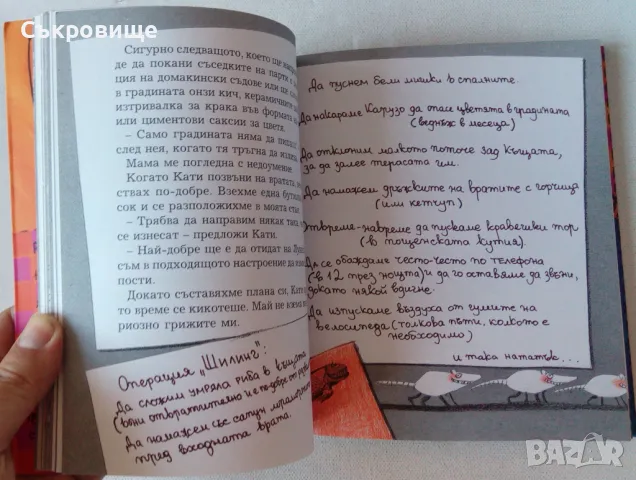 Съкровище
Сигурно следващото, което ще
де да покани съседките на парти
ция на домакински съдове или
в градината онзи кич, керамичните
изтривалка за крака във формата на
или циментови саксии за цветя.
– Само градината няма да
след нея, когато тя тръгна да
Мама ме погледна с недоумение
Когато Кати позвъни на вратата,
ствах по-добре. Взехме една
сок и се разположихме в моята
– Трябва да направим някак така
се изнесат – предложи Кати.
– Най-добре ще е да отидат на
съм в подходящото настроение да
пости.
Докато съставяхме плана си, Кати
то време се кикотеше. Май не
риозно грижите ми.
Операция „Шилинг":
Да сложим умряла риба в къщата
(вони отвратително
Да намажем със сапун
пред входната врата.
Да пуснем бели мишки в спалните.
Да накараме Карузо да опасе цветята в градината
(веднъж в месеца)
Да отклоним малкото поточе зад къщата,
за да залее терасата им.
Да намажем дръжките на вратите с горчица
(или кетчуп)
От време-навреме да пускаме кравешки тор
(в пощенската кутия).
Да се обаждаме често-често по телефона
(в 12 през нощта) и да го оставяме да звъни,
докато някой вдигне.
Да изпускаме въздуха от гумите на
велосипеда (толкова пъти, колкото е
необходимо)
и така нататък...
BAZAR